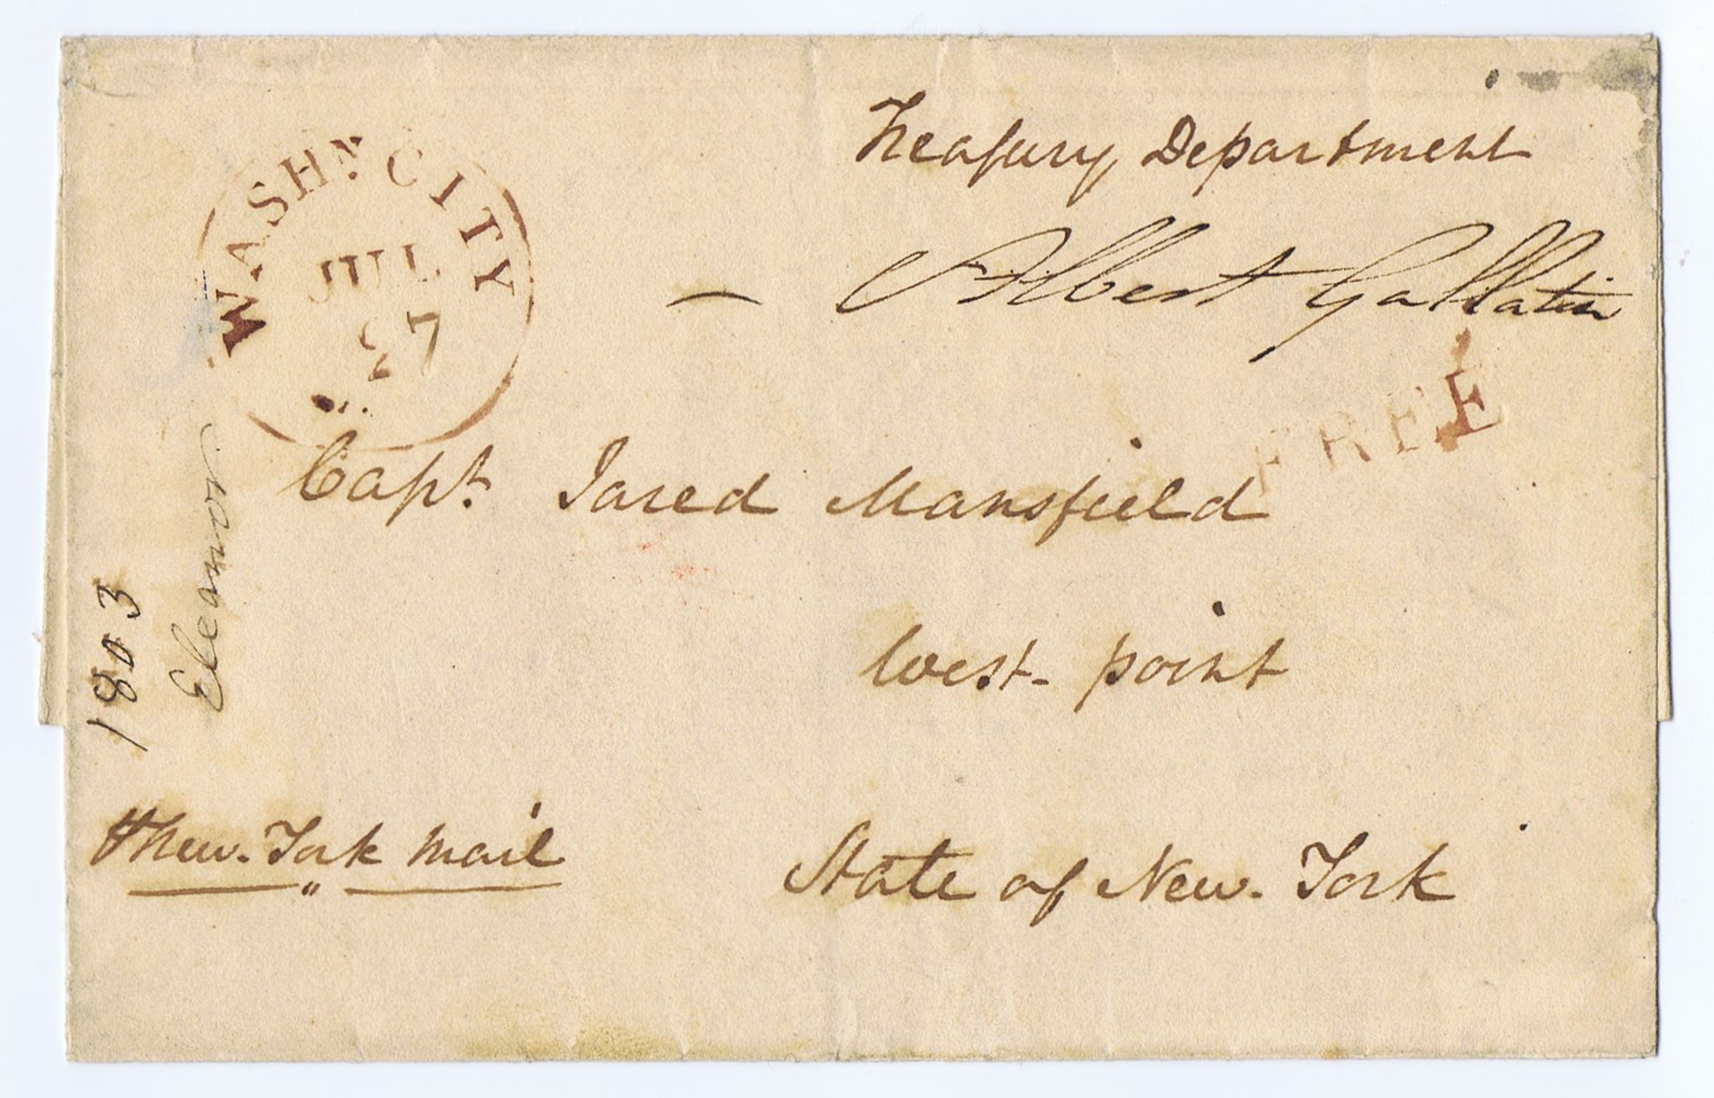 Treasury Department
WASHN. CITY
JUL
27
Albert Gallatin
FREE
Capt. Jared Mansfield
West-point
New-York Mail
State of New-York
1803
Eleanor